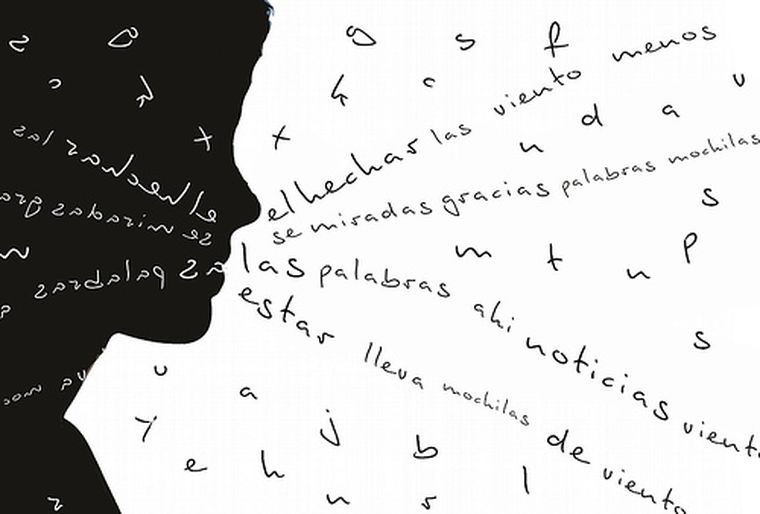 g s f
h c
x
el hechar las viento menos
n d a v
se miradas gracias palabras mochilas
s
m t n p
las palabras ahi noticias
s
estar lleva mochilas de viento
v a
y j b
e h l
n s